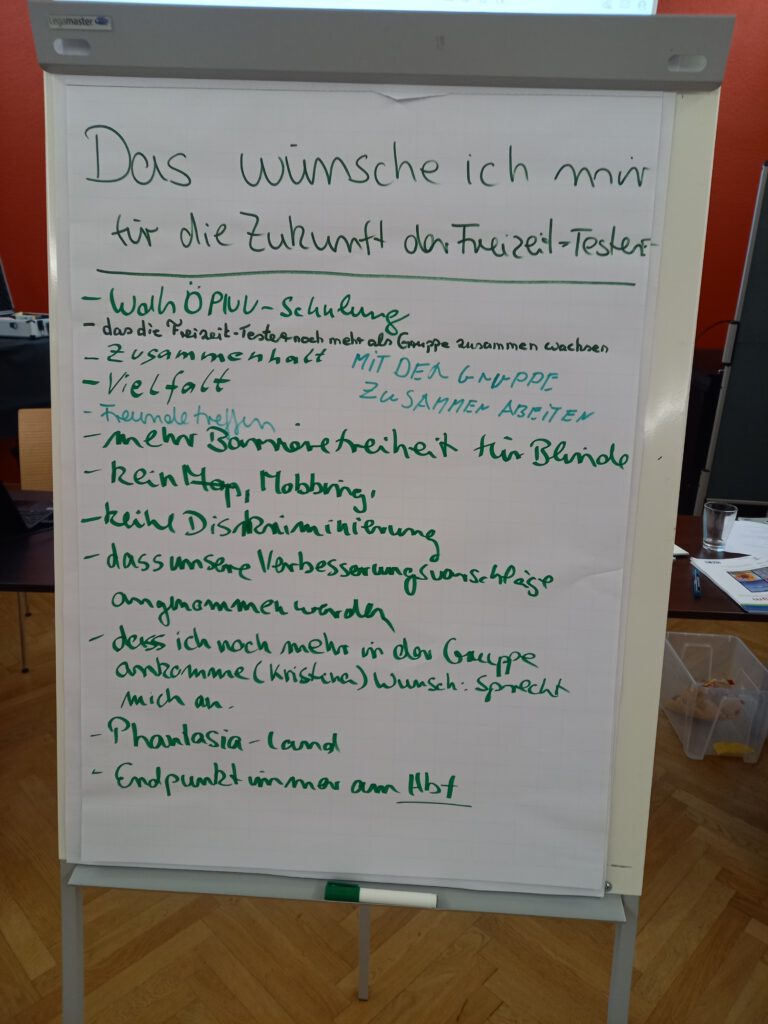 Legamaster
Das wünsche ich mir
für die Zukunft der Freizeit-Tester
- ÖPNV-Schulung
- das die Freizeit-Tester noch mehr als Gruppe zusammen wachsen
- Zusammenhalt
MIT DER GRUPPE
- Vielfalt
ZUSAMMEN ABEITEN
- Freunde treffen
- mehr Barrierefreiheit für Blinde
- kein Mobbing,
- keine Diskriminierung
- dass unsere Verbesserungsvorschläge
angnommen werden
- dass ich noch mehr in der Gruppe
ankomme (Kristina) Wunsch: Sprecht
mich an.
- Phantasia-Land
- Endpunkt immer am Hbf